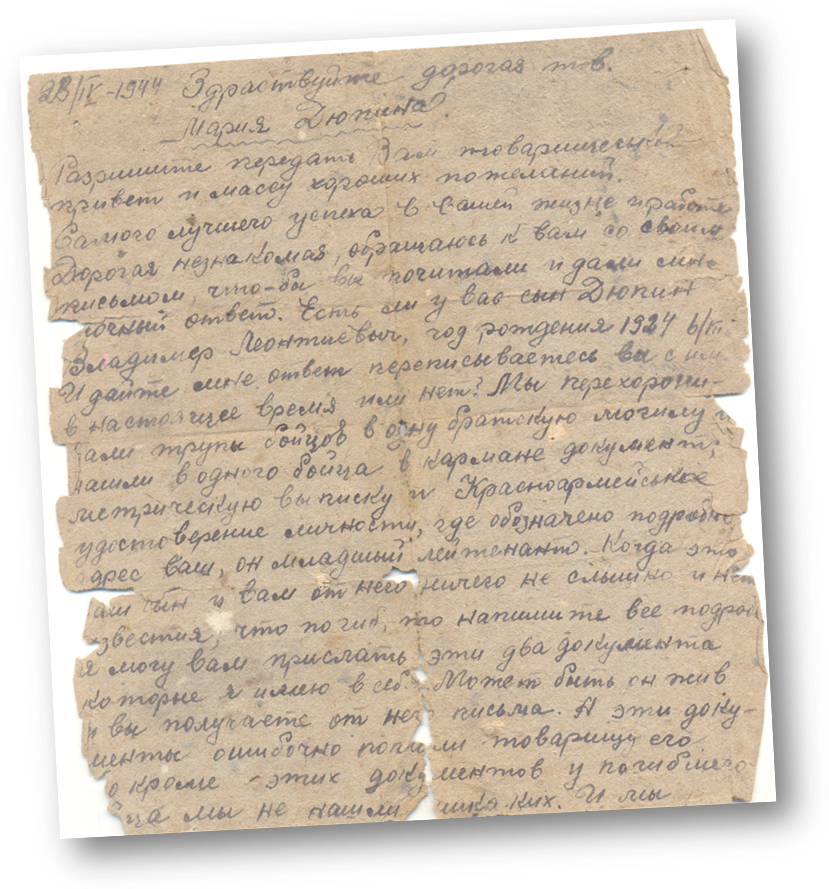 28/IX-1944 Здраствуйте дорогая тов.
Мария Дюпина
Разришите передать Вам товарищеський
привет и массу хороших пожеланий.
Самого лучшего успеха в вашей жизне и работе
Дорогая незнакомая, обращаюсь к вам со своим
письмом, что-би вы почитали и дали мне
точный ответ. Есть ли у вас сын Дюпин
Владимер Леонтиевыч, год рождения 1924 6/VII
И дайте мне ответ переписываетесь вы с им
в настоящее время или нет? Мы перехорони-
вали трупы бойцов в одну братскую могилу и
нашли в одного бойца в кармане документ,
метрическую выписку и Красноармейськое
удостоверение личности, где обозначено подробно
адрес ваш, он младшый лейтенант. Когда это
вам сын и вам от него ничего не слышно и нет
звестия, что погиб, то напишите все подроб
я могу вам прислать эти два документа
которые я имею в себе. Может быть он жив
и вы получаете от него письма. А эти доку-
менты ошибочно попали товарищу его
о кроме этих документов у погибшего
йца мы не нашли никаких. И мы